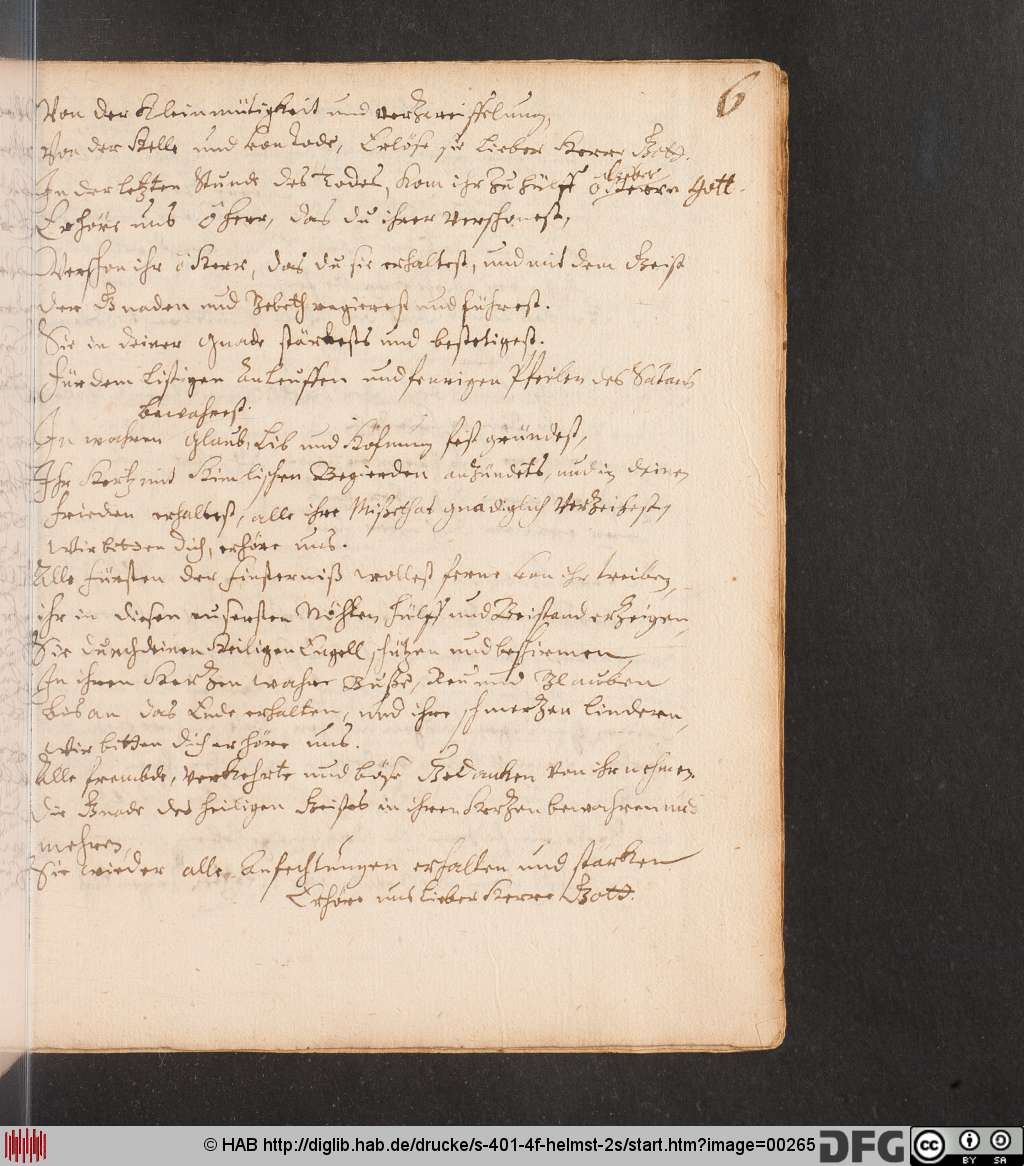 6
Von der Kleinmütigkeit und verzweiffelung,
Von der Helle und von Tode, Erlöse sie lieber Herre Gott.
In der letzten Stunde des Todes, kom ihr zu hülff ô lieber Herre Gott.
Erhöre uns ô herr, das du ihrer verschonest,
Verschon ihr ô Herr, das du sie erhaltest, und mit dem Geist
der Gnaden und Gebeth regierest und führest.
Sie in deiner gnade stärkests und bestetigest.
Für dem listigen Anleuffen und feurigen Pfeilen des Satans
bewahrest.
In wahren glaub, Lib und Hofnung fest gründest,
Ihr Hertz mit Himlischen Begierden anzündets, und in deinen
frieden erhaltest, alle ihre Mißethat gnädiglich Verzeihest,
Wir bitten dich, erhöre uns.
Alle fürsten der finsterniß wollest ferne von ihr treiben,
ihr in diesen eusersten Nöhten hülff und Beistand erzeigen,
Sie durch deinen Heiligen Engell schützen und beschirmen,
In ihren Hertzen wahre Buße, Reu und Glauben
bis an das Ende erhalten, und ihre schmertzen lindern,
Wir bitten dich erhöre uns.
Alle frembde, verkehrte und böse Gedanken von ihr nehmen,
Die Gnade des heiligen Geistes in ihren Hertzen bewahren und
mehren,
Sie wieder alle Anfechtungen erhalten und stärken
Erhöre uns lieber Herre Gott.
© HAB http://diglib.hab.de/drucke/s-401-4f-helmst-2s/start.htm?image=00265
DFG
cc
BY SA